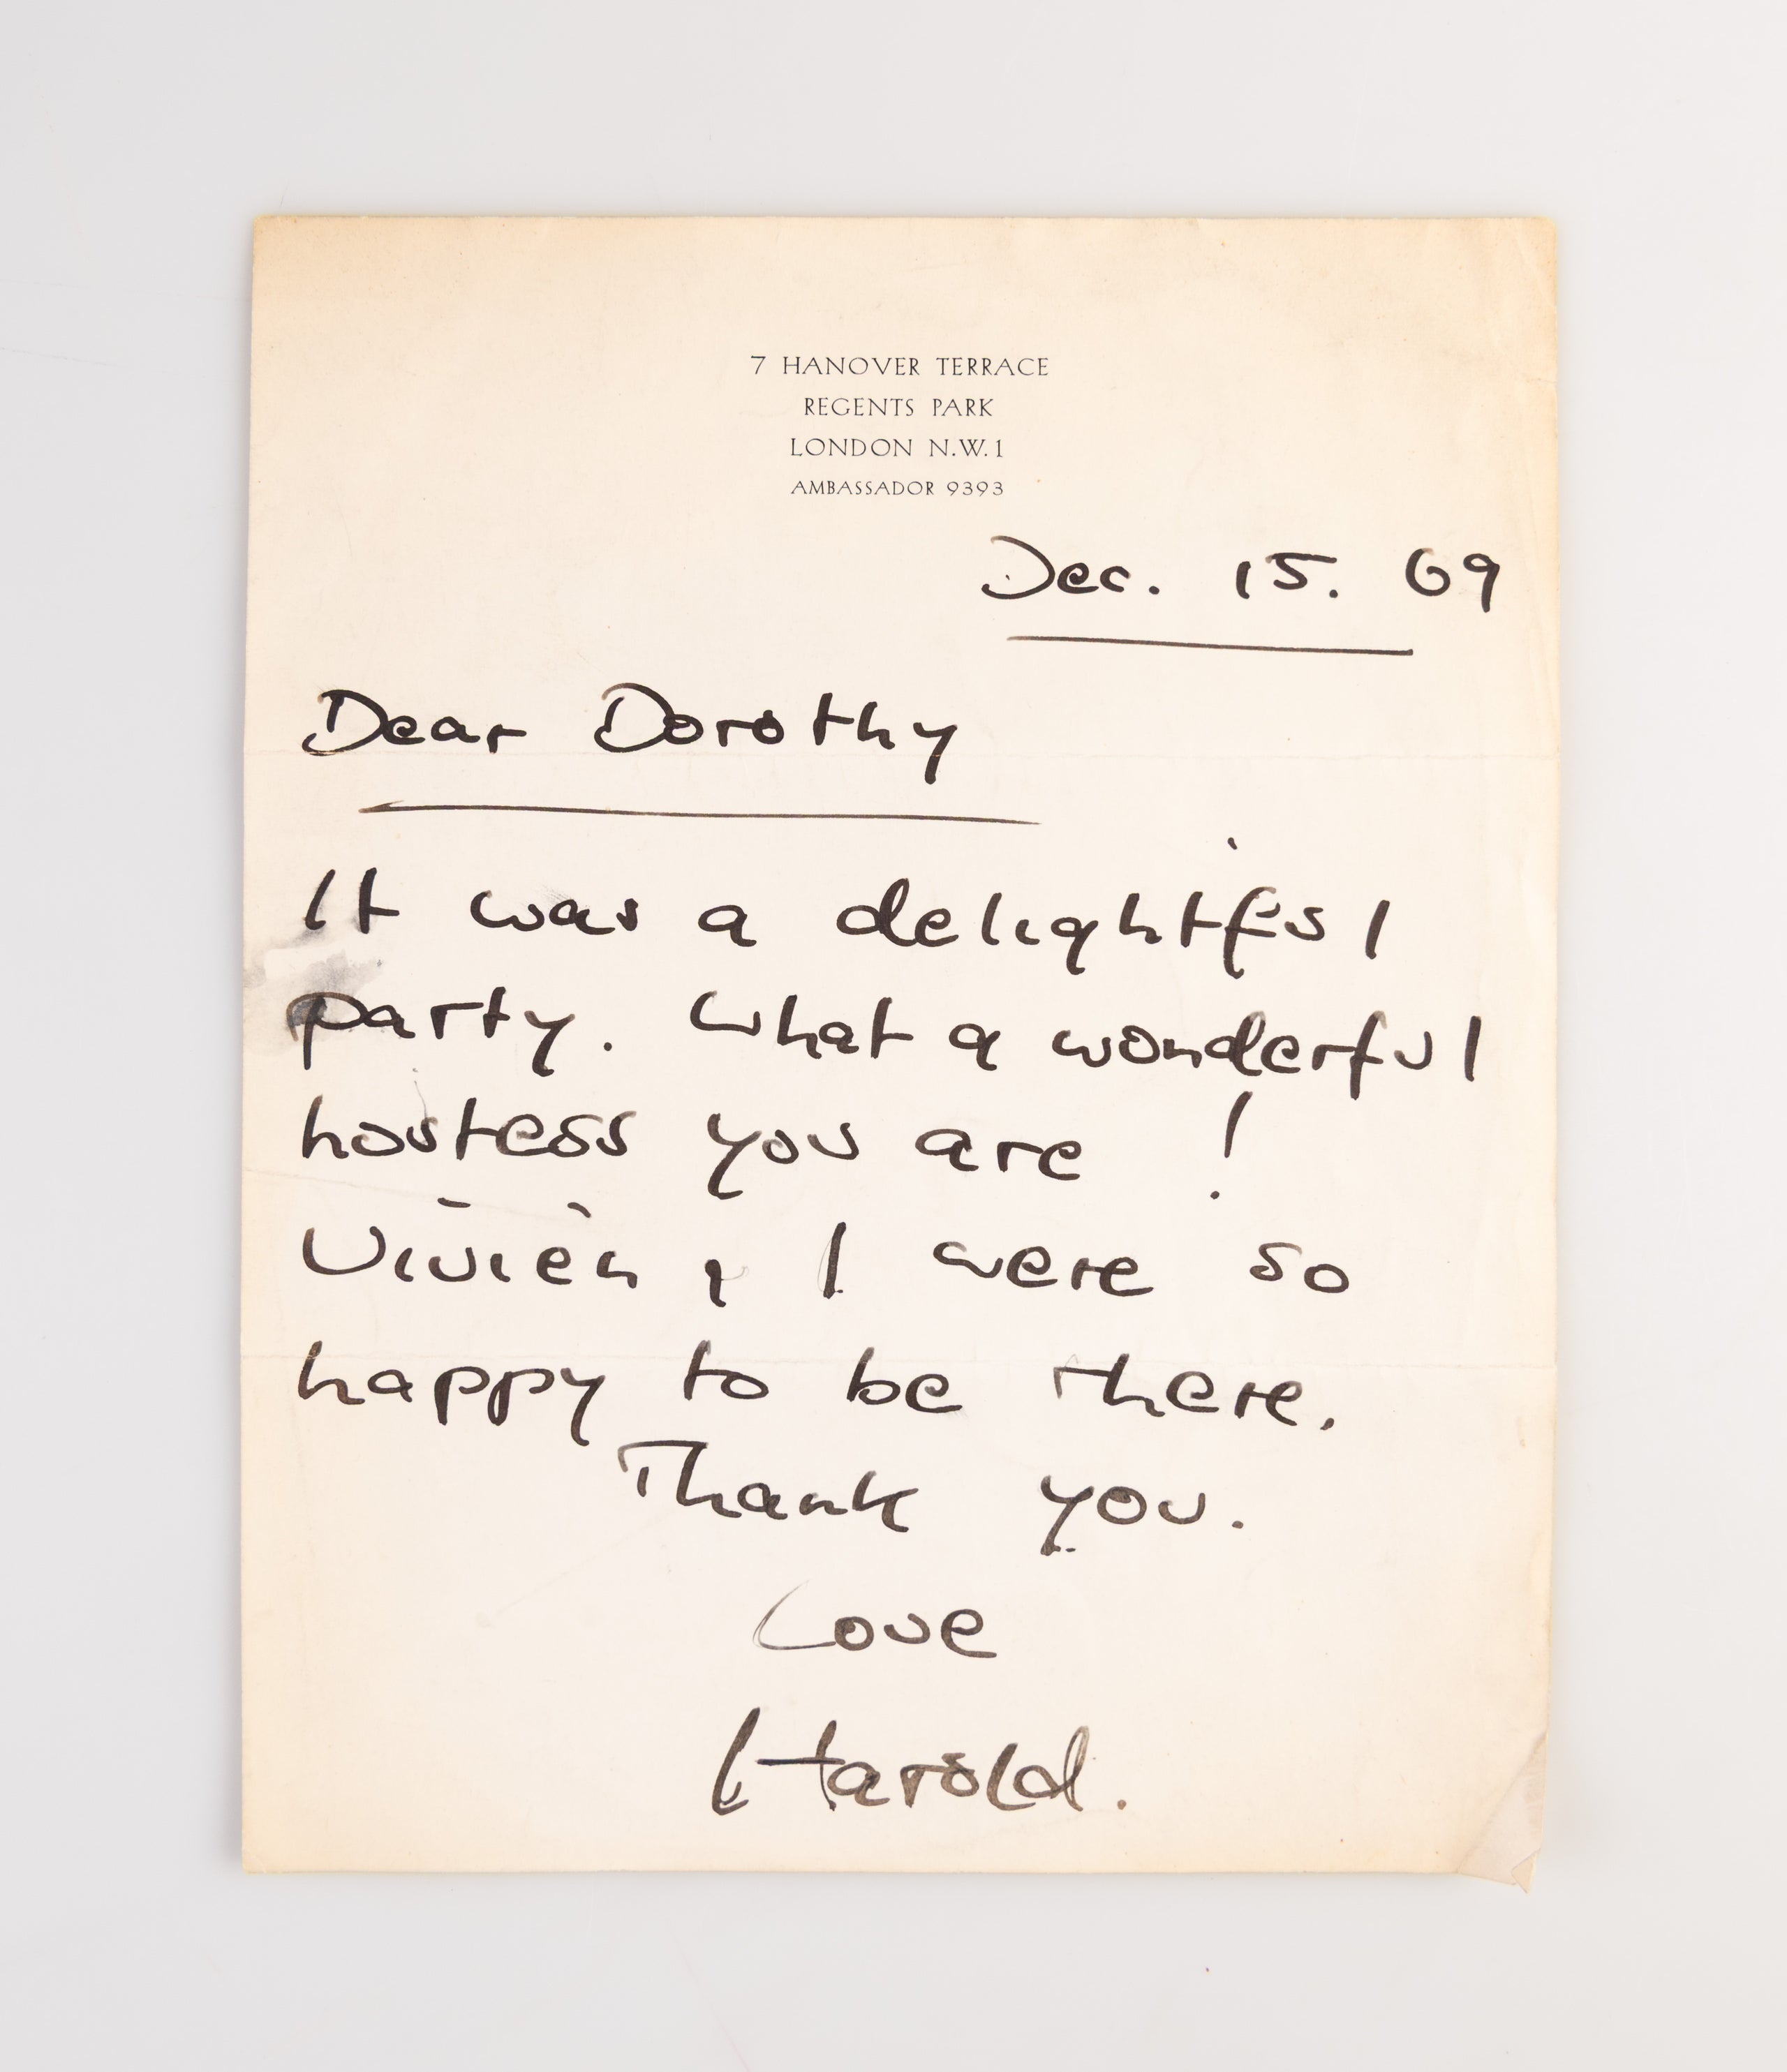 7 HANOVER TERRACE
REGENTS PARK
LONDON N.W.1
AMBASSADOR 9393
Dec. 15. 69
Dear Dorothy
It was a delightful
party. What a wonderful
hostess you are !
Vivien & I were so
happy to be there.
Thank you.
Love
Harold.